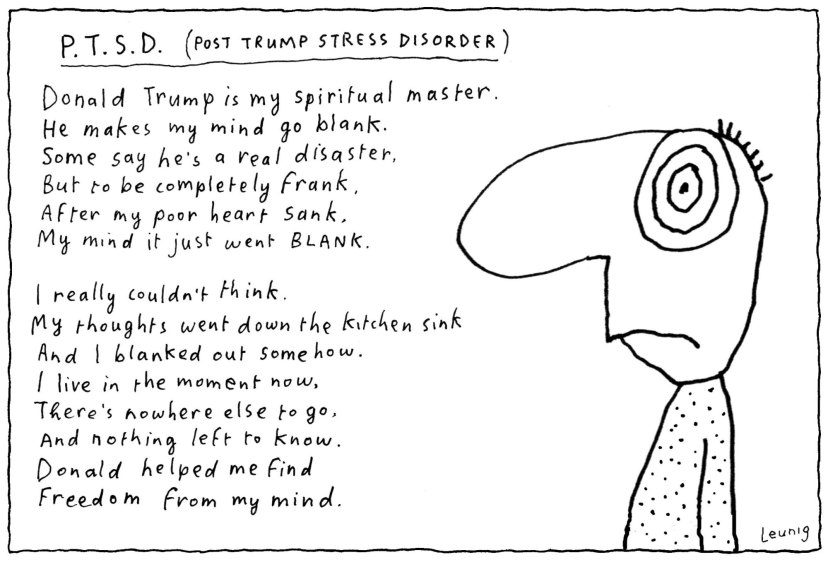 P.T.S.D. (POST TRUMP STRESS DISORDER)
Donald Trump is my spiritual master.
He makes my mind go blank.
Some say he's a real disaster,
But to be completely frank,
After my poor heart sank,
My mind it just went BLANK.
I really couldn't think.
My thoughts went down the kitchen sink
And I blanked out somehow.
I live in the moment now,
There's nowhere else to go,
And nothing left to know.
Donald helped me find
Freedom from my mind.
Leunig